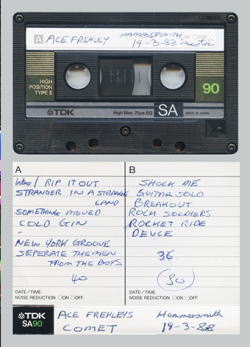 A ACE FREHLEY HAMMERSMITH
19-3-88
HIGH
POSITION
TYPE II
90
TDK
High Bias 70µs EQ
SA
A
INTRO / RIP IT OUT
STRANGER IN A STRANGE
LAND
SOMETHING MOVED
COLD GIN
NEW YORK GROOVE
SEPERATE THE MEN
FROM THE BOYS
40
DATE/TIME
NOISE REDUCTION ON OFF
B
SHOCK ME
GUITAR SOLO
BREAKOUT
ROCK SOLDIERS
ROCKET RIDE
DEUCE
36
(80)
DATE/TIME
NOISE REDUCTION ON OFF
TDK
SA90
ACE FREHLEYS
COMET
Hammersmith
19-3-88